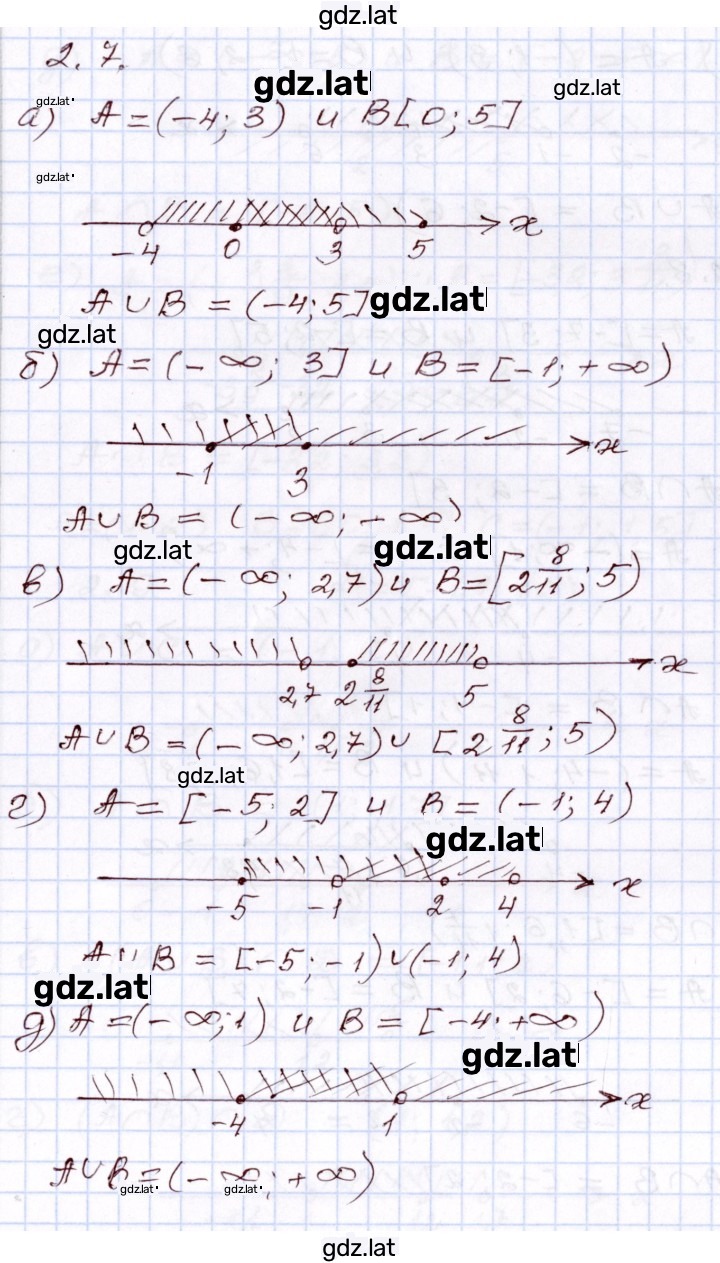 gdz.lat
2.7.
gdz.lat
gdz.lat
gdz.lat
а) A = (-4; 3) и B[0; 5]
gdz.lat
-4 0 3 5 x
A ∪ B = (-4; 5]
gdz.lat
gdz.lat
б) A = (-∞; 3] и B = [-1; +∞)
-1 3 x
A ∪ B = (-∞; -∞)
gdz.lat
gdz.lat
в) A = (-∞; 2,7) и B = [2 8/11; 5)
2,7 2 8/11 5 x
A ∪ B = (-∞; 2,7) ∪ [2 8/11; 5)
gdz.lat
г) A = [-5; 2] и B = (-1; 4)
gdz.lat
-5 -1 2 4 x
A ∪ B = [-5; -1) ∪ (-1; 4)
gdz.lat
д) A = (-∞; 1) и B = [-4; +∞)
gdz.lat
-4 1 x
A ∪ B = (-∞; +∞)
gdz.lat
gdz.lat
gdz.lat